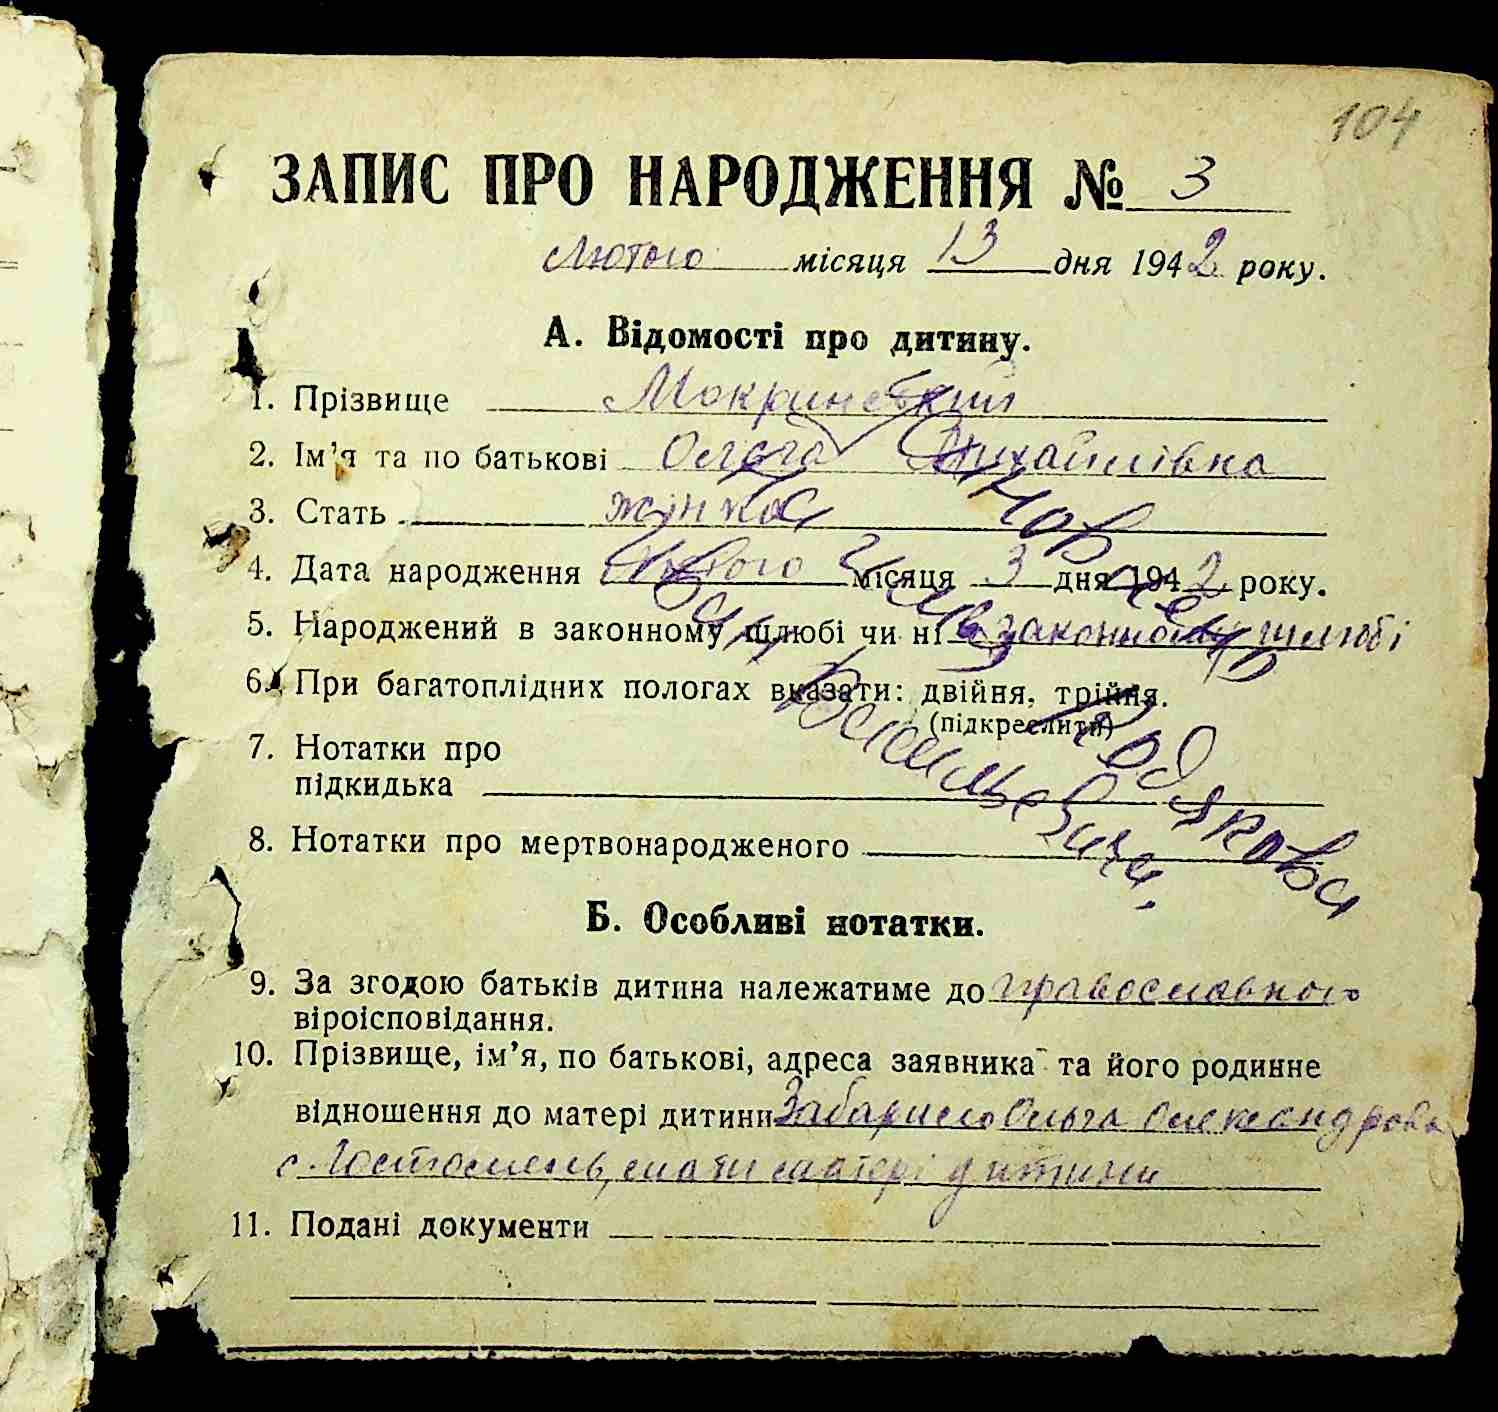 104
ЗАПИС ПРО НАРОДЖЕННЯ № 3
Лютого місяця 13 дня 1942 року.
А. Відомості про дитину.
1. Прізвище Мокринський
2. Ім’я та по батькові Ольга Михайлівна
3. Стать жінка
4. Дата народження Лютого місяця 3 дня 1942 року.
5. Народжений в законному шлюбі чи ні в законному шлюбі
6. При багатоплідних пологах вказати: двійня, трійня.
(підкреслити)
7. Нотатки про
підкидька
8. Нотатки про мертвонародженого
Б. Особливі нотатки.
9. За згодою батьків дитина належатиме до православного
віроісповідання.
10. Прізвище, ім’я, по батькові, адреса заявника та його родинне
відношення до матері дитини Ольга Олександрова
с. Гостомель, мати матері дитини
11. Подані документи